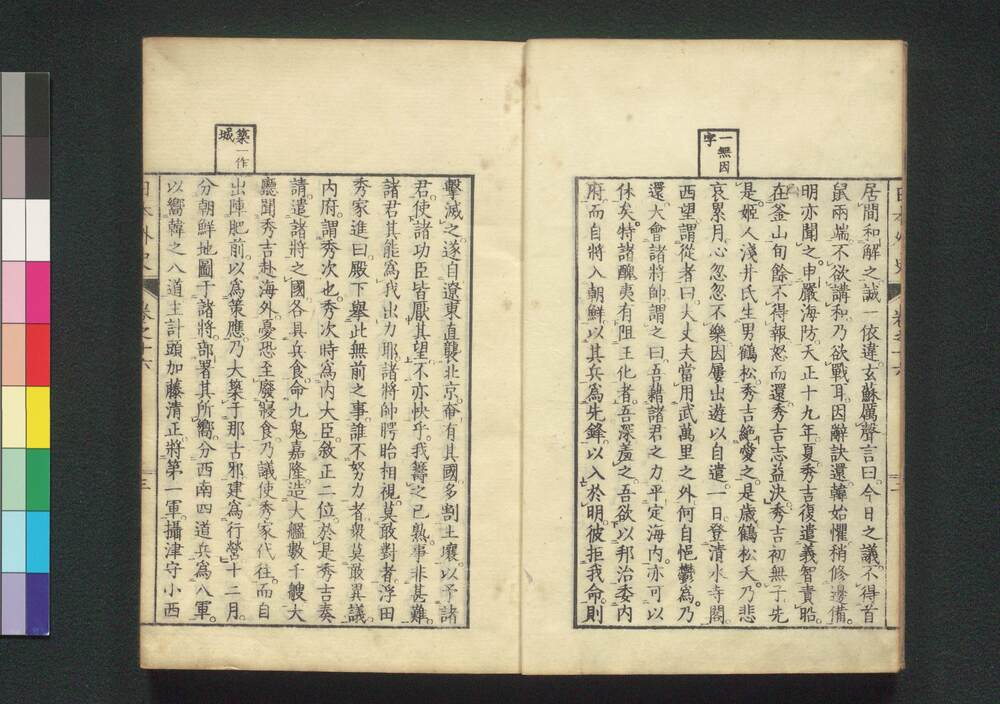 一無因
字
居間和解之誠一依違。玄蘇厲聲言曰。今日之議。不得首
鼠兩端。不欲講和。乃欲戰耳。因辭訣還。韓始懼。稍修邊備。
明亦聞之。申嚴海防。天正十九年夏。秀吉復遣義智責昭。
在釜山旬餘。不得報。怒而還。秀吉志益決。秀吉初無子。先
是。姬人淺井氏生男鶴松。秀吉絕愛之。是歲鶴松夭。乃悲
哀累月。心忽忽不樂。因屢出遊以自遣。一日登清水寺閣。
西望謂從者曰。大丈夫當用武萬里之外。何自悒鬱爲。乃
還大會諸將帥。謂之曰。吾藉諸君之力。平定海內。亦可以
休矣。特諸醜夷有阻王化者。吾深羞之。吾欲以邦治委內
府。而自將入朝鮮。以其兵爲先鋒。以入於明。彼拒我命。則
築一作
城
擊滅之。遂自遼東直襲北京。奄有其國。多割土壤。以予諸
君。使諸功臣皆厭其望。不亦快乎。我籌之已熟。事非甚難。
諸君其能爲我出力耶。諸將帥愕眙相視。莫敢對者。浮田
秀家進曰。殿下舉此無前之事。誰不努力者。衆莫敢異議。
內府謂秀次也。秀次時爲內大臣。敘正二位。於是秀吉奏
請。遣諸將之國。各具兵食。命九鬼嘉隆造大艦數千艘。大
廳聞秀吉赴海外。憂恐至廢寢食。乃議使秀家代往。而自
出陣肥前。以爲策應。乃大築于那古邪。建爲行營。十二月。
分朝鮮地圖于諸將。部署其所嚮。分西南四道兵爲八軍。
以嚮韓之八道。主計頭加藤清正將第一軍。攝津守小西